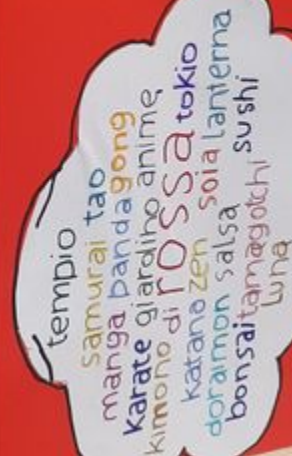 tempio
samurai tao
manga panda gong
karate giardino anime
kimono di rossa tokio
katana zen soia lanterna
doraimon salsa
bonsai tamagotchi sushi
luna